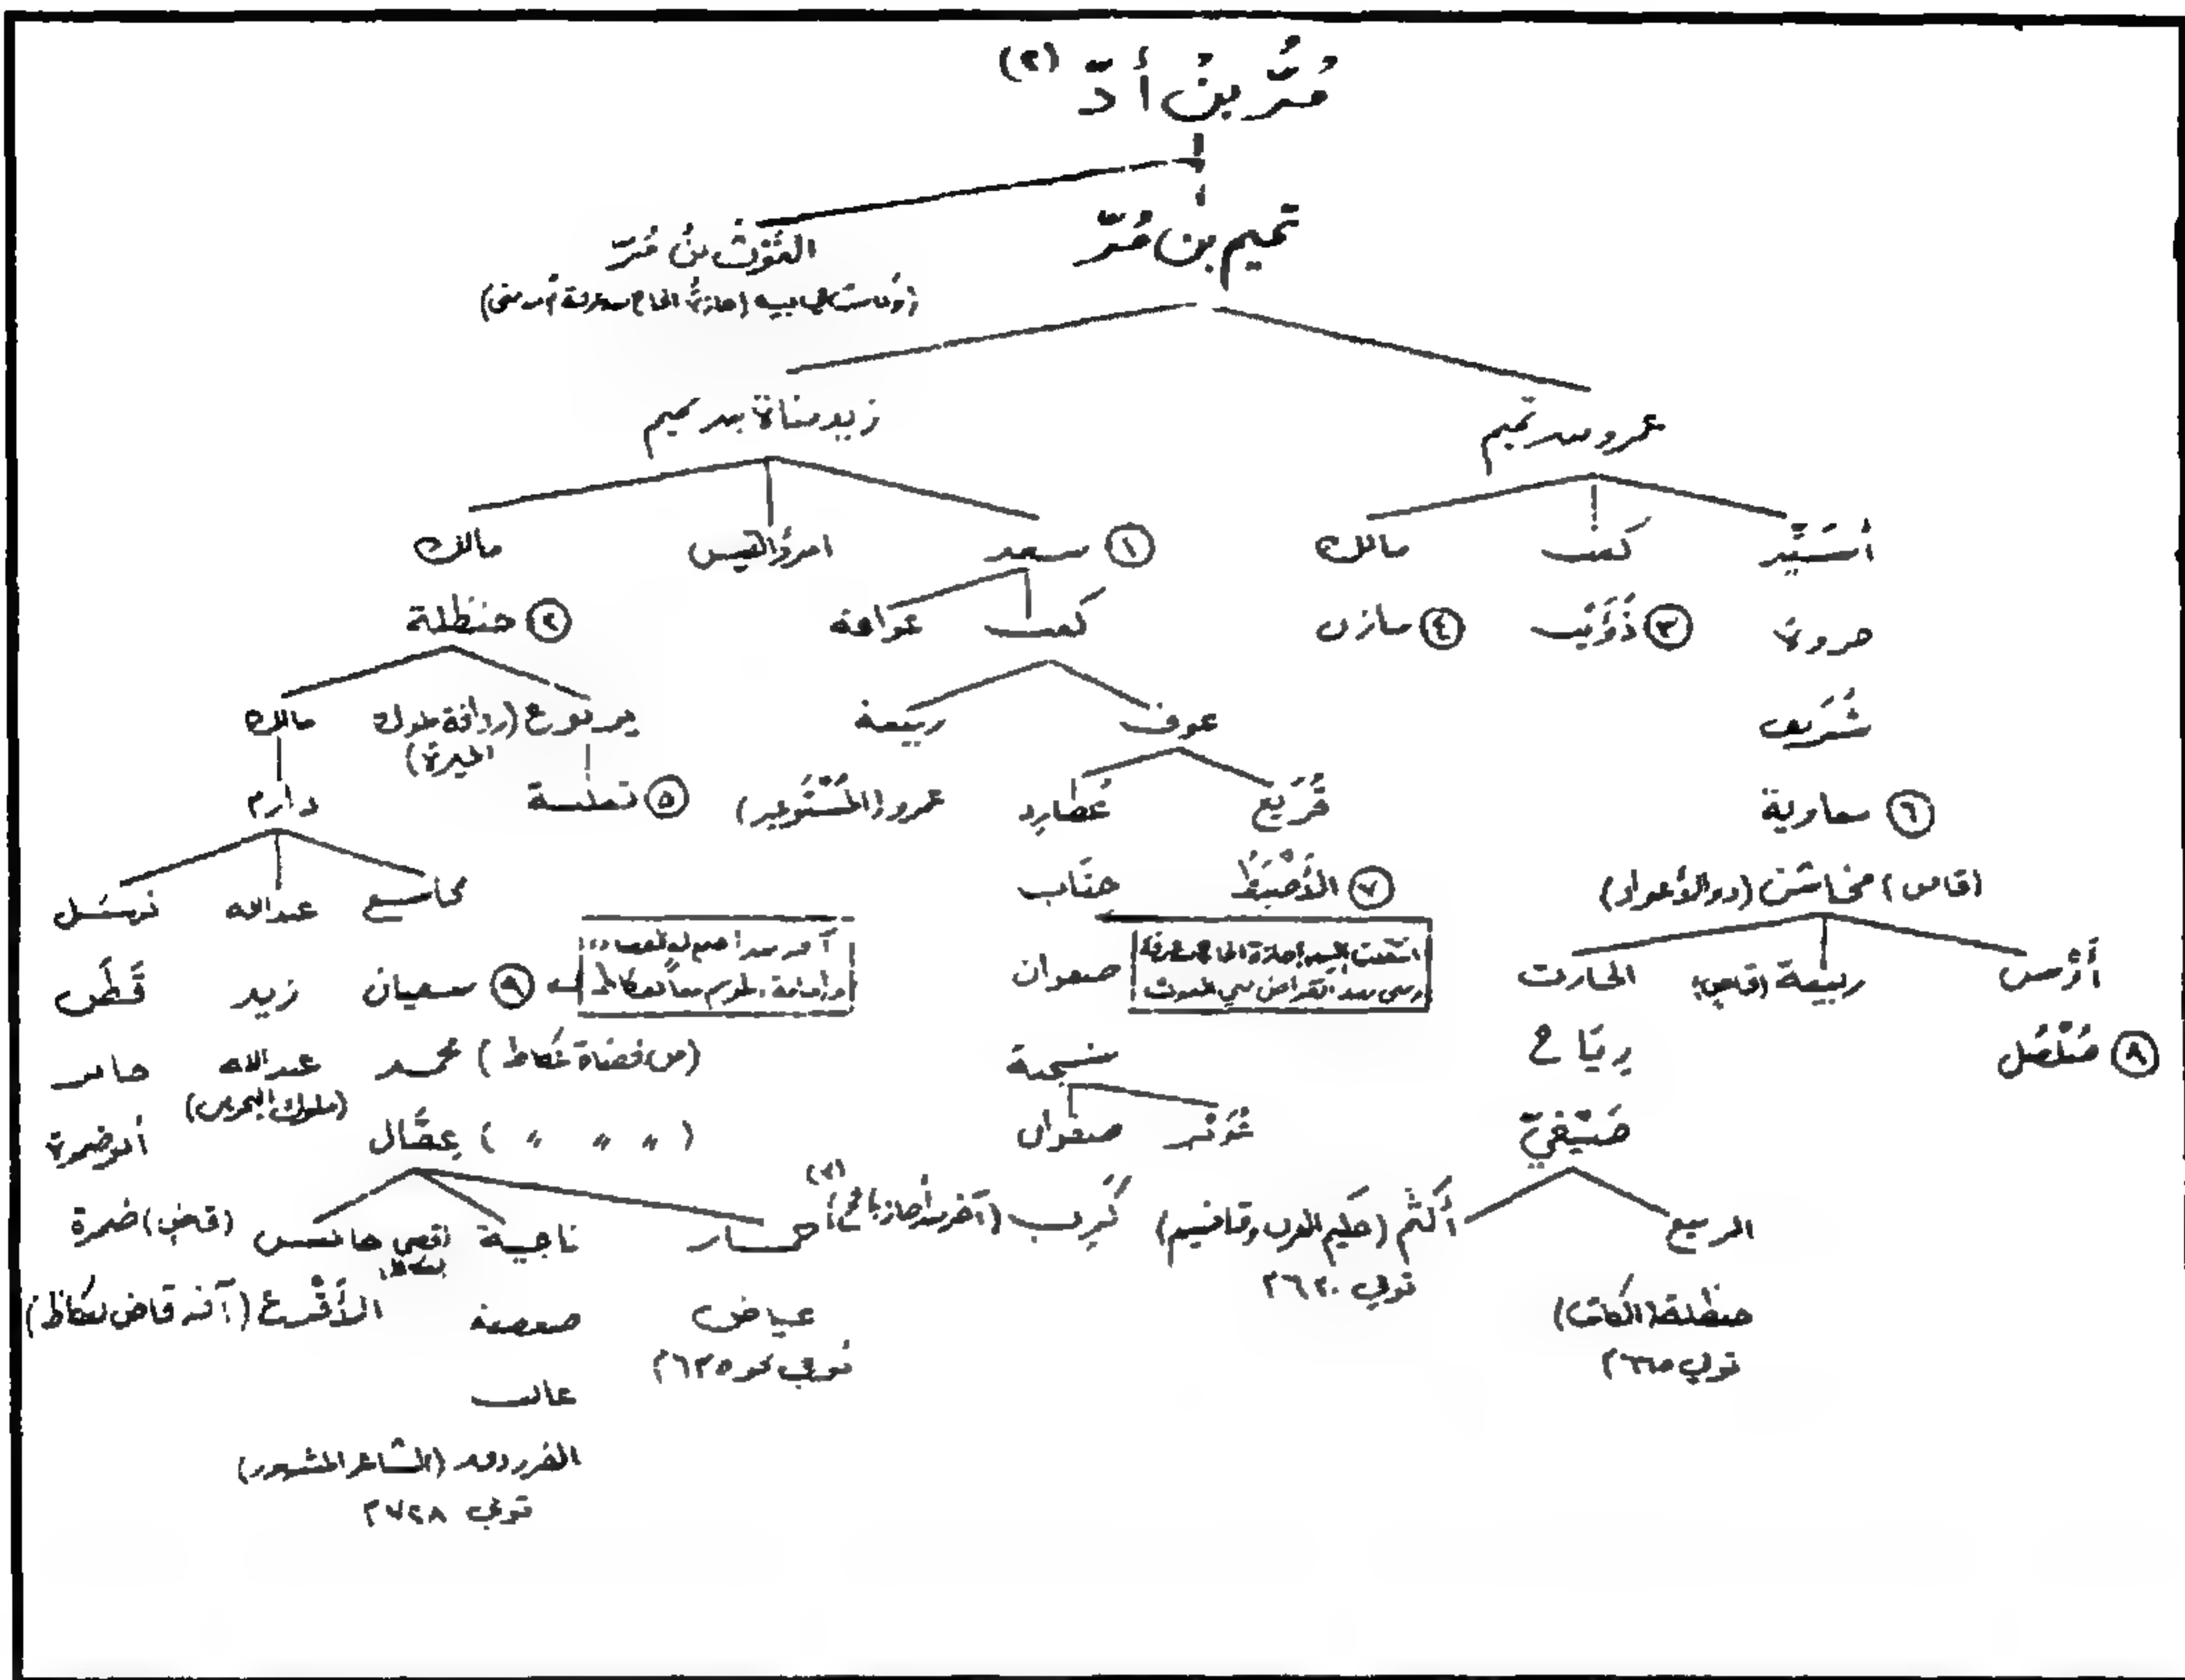 مُرُّ بنُ أدّ (٢)
تميم بن مُرّ
الغَوْثُ بنُ مُرّ
عمرو بن تميم
زيد مناة بن تميم
أُسَيِّد
كعب
مالك
① سعد
امرؤ القيس
مالك
جروة
③ ذُؤَيْب
④ مازن
كعب
عوافة
② حنظلة
شُرَيف
عوف
ربيعة
يربوع (ردافة ملوك الحيرة)
مالك
⑥ معاوية
قُرَيع
عُطارِد
عمرو (المُسْتَوْغِر)
⑤ ثعلبة
دارم
(قاض) مخاشن (ذو الأعواد)
⑦ الأَضْبَط
جناب
مجاشع
عبدالله
نهشل
أَوْس
ربيعة (قاض)
الحارث
انتقلت إليه إجازة الحاج بعرفة
صفوان
⑨ سفيان
زيد
قَطَن
⑧ صُلْصُل
رِيَاح
شجنة
(من قضاة عُكاظ) محمد
عبدالله
(ملوك البحرين)
جابر
صَيْفِيّ
صفوان
(〃 〃 〃) عِقَال
أبو ضمرة
الربيع
أكثم (حكيم العرب وقاضيهم)
توفي ٦٣٠م
كَرِب (آخر من أجاز بالحج) (٢)
حمار
ناجية
حابس
(قاض) ضمرة
حنظلة (الكاتب)
توفي ٦٦٥م
عياض
توفي نحو ٦٢٥م
صعصعة
الأَقْرع (آخر قاض لعكاظ)
غالب
الفرزدق (الشاعر المشهور)
توفي ٧٢٨م